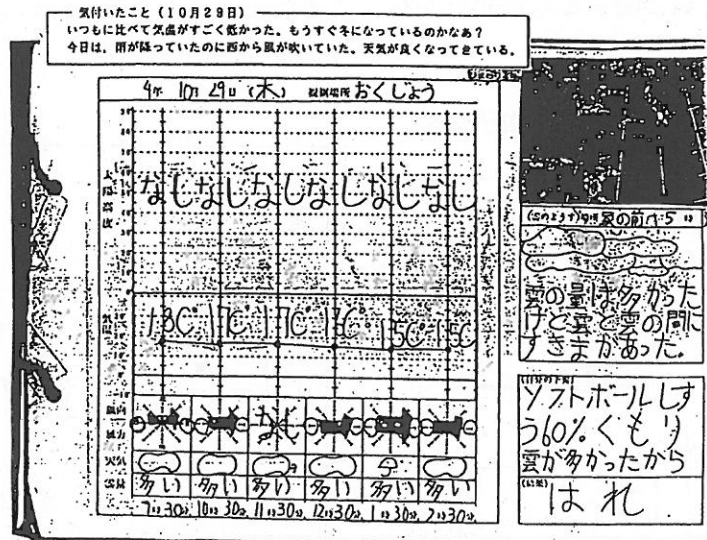 気付いたこと（10月29日）
いつもに比べて気温がすごく低かった。もうすぐ冬になっているのかなあ？
今日は、雨が降っていたのに西から風が吹いていた。天気が良くなってきている。
4年 10月 29日（木） 観測場所 おくじょう
太陽高度
なし なし なし なし なし なし
気温
18C° 17C° 17C° 15C° 15C
風向
なし
風力
天気
雲量 多い 多い 多い 多い 多い 多い
7時30分 10時30分 11時30分 12時30分 1時30分 2時30分
雲の量は多かった
けど雲と雲の間に
すきまがあった。
ソフトボールしす
う60% くもり
雲が多かったから
(結果)
はれ